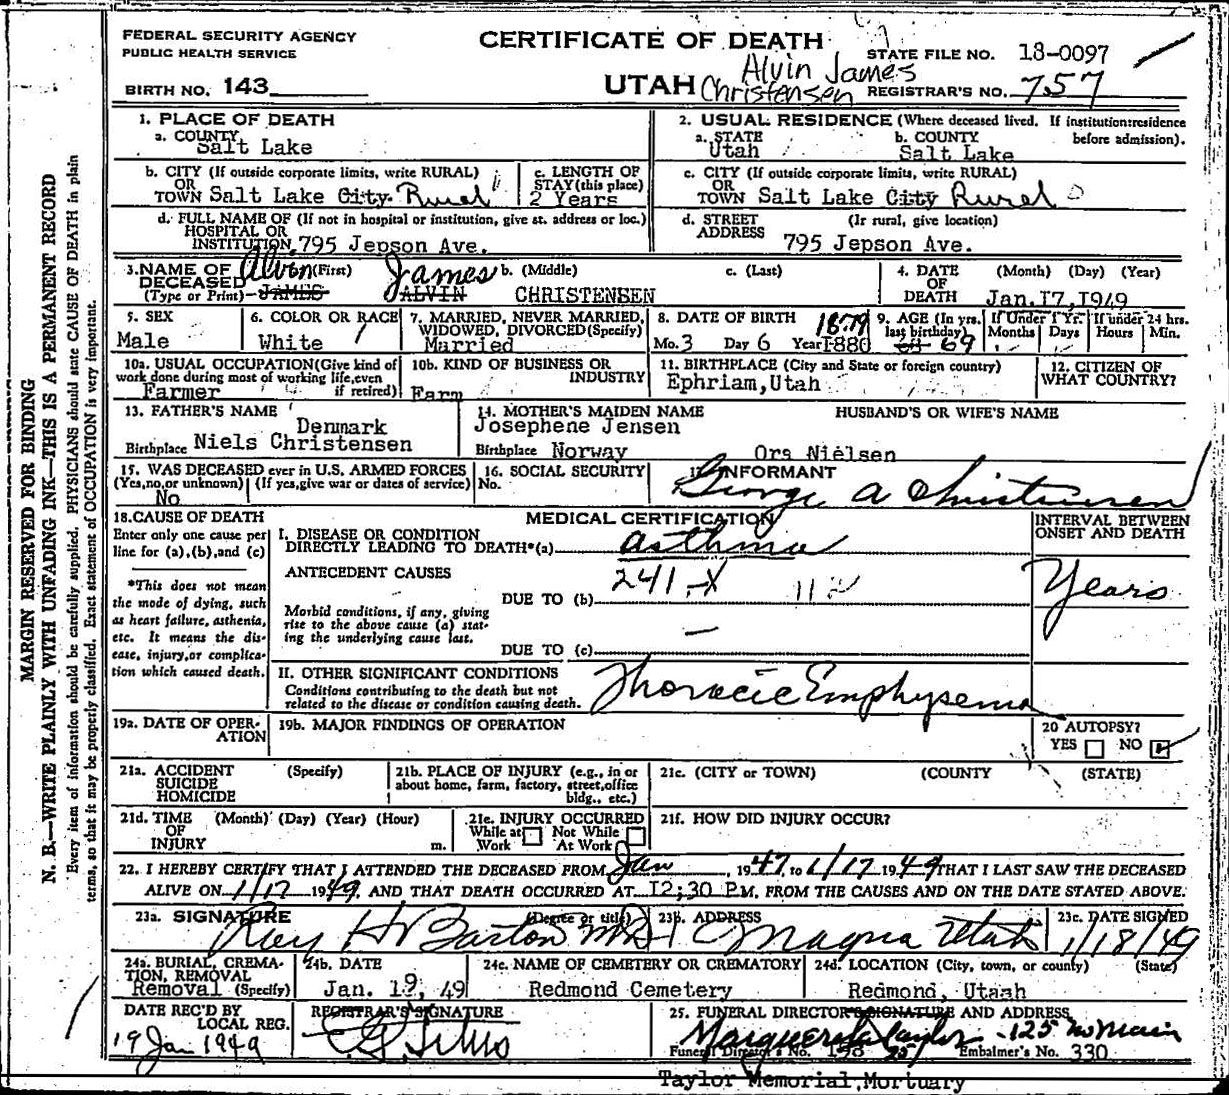 FEDERAL SECURITY AGENCY
PUBLIC HEALTH SERVICE
CERTIFICATE OF DEATH
STATE FILE NO. 18-0097
BIRTH NO. 143
UTAH
Alvin James
Christensen
REGISTRAR'S NO. 757
MARGIN RESERVED FOR BINDING
N. B.—WRITE PLAINLY WITH UNFADING INK—THIS IS A PERMANENT RECORD
Every item of information should be carefully supplied. PHYSICIANS should state CAUSE OF DEATH in plain
terms, so that it may be properly classified. Exact statement of OCCUPATION is very important.
1. PLACE OF DEATH
a. COUNTY
Salt Lake
2. USUAL RESIDENCE (Where deceased lived. If institution:residence
before admission).
a. STATE
Utah
b. COUNTY
Salt Lake
b. CITY (If outside corporate limits, write RURAL)
OR
TOWN Salt Lake City Rural
c. LENGTH OF
STAY(this place)
2 Years
c. CITY (If outside corporate limits, write RURAL)
OR
TOWN Salt Lake City Rural
d. FULL NAME OF (If not in hospital or institution, give st. address or loc.)
HOSPITAL OR
INSTITUTION 795 Jepson Ave.
d. STREET
ADDRESS
(If rural, give location)
795 Jepson Ave.
3. NAME OF
DECEASED
(Type or Print)
Alvin (First)
JAMES
James b. (Middle)
ALVIN
c. (Last)
CHRISTENSEN
4. DATE
OF
DEATH
(Month) (Day) (Year)
Jan.17,1949
5. SEX
Male
6. COLOR OR RACE
White
7. MARRIED, NEVER MARRIED,
WIDOWED, DIVORCED(Specify)
Married
8. DATE OF BIRTH 1879
Mo. 3 Day 6 Year 1880
9. AGE (In yrs.
last birthday)
69
If Under 1 Yr.
Months Days
If under 24 hrs.
Hours Min.
10a. USUAL OCCUPATION(Give kind of
work done during most of working life,even
if retired)
Farmer
10b. KIND OF BUSINESS OR
INDUSTRY
Farm
11. BIRTHPLACE (City and State or foreign country)
Ephriam,Utah
12. CITIZEN OF
WHAT COUNTRY?
13. FATHER'S NAME
Denmark
Birthplace Niels Christensen
14. MOTHER'S MAIDEN NAME
Josephene Jensen
Birthplace Norway
HUSBAND'S OR WIFE'S NAME
Ors Nielsen
15. WAS DECEASED ever in U.S. ARMED FORCES
(Yes,no,or unknown) (If yes,give war or dates of service)
No
16. SOCIAL SECURITY
No.
17. INFORMANT
George A Christensen
18.CAUSE OF DEATH
Enter only one cause per
line for (a),(b),and (c)
*This does not mean
the mode of dying, such
as heart failure, asthenia,
etc. It means the dis-
ease, injury,or complica-
tion which caused death.
MEDICAL CERTIFICATION
I. DISEASE OR CONDITION
DIRECTLY LEADING TO DEATH*(a) asthma
ANTECEDENT CAUSES
241-X
DUE TO (b)
Morbid conditions, if any, giving
rise to the above cause (a) stat-
ing the underlying cause last.
DUE TO (c) —
II. OTHER SIGNIFICANT CONDITIONS
Conditions contributing to the death but not
related to the disease or condition causing death.
Thoracic Emphysema
INTERVAL BETWEEN
ONSET AND DEATH
Years
19a. DATE OF OPER-
ATION
19b. MAJOR FINDINGS OF OPERATION
20 AUTOPSY?
YES NO
21a. ACCIDENT
SUICIDE
HOMICIDE
(Specify)
21b. PLACE OF INJURY (e.g., in or
about home, farm, factory, street,office
bldg., etc.)
21c. (CITY or TOWN) (COUNTY) (STATE)
21d. TIME
OF
INJURY
(Month) (Day) (Year) (Hour)
m.
21e. INJURY OCCURRED
While at Work
Not While At Work
21f. HOW DID INJURY OCCUR?
22. I HEREBY CERTIFY THAT I ATTENDED THE DECEASED FROM Jan, 1947, to 1/17 1949 THAT I LAST SAW THE DECEASED
ALIVE ON 1/17 1949, AND THAT DEATH OCCURRED AT 12;30 PM, FROM THE CAUSES AND ON THE DATE STATED ABOVE.
23a. SIGNATURE (Degree or title)
Ray H Barton MD
23b. ADDRESS
Magna Utah
23c. DATE SIGNED
1/18/49
24a. BURIAL, CREMA-
TION, REMOVAL
Removal (Specify)
24b. DATE
Jan. 19, 49
24c. NAME OF CEMETERY OR CREMATORY
Redmond Cemetery
24d. LOCATION (City, town, or county) (State)
Redmond, Utaah
DATE REC'D BY
LOCAL REG.
19 Jan 1949
REGISTRAR'S SIGNATURE
25. FUNERAL DIRECTOR'S SIGNATURE AND ADDRESS
Marguerete Taylor -125 No Main
Funeral Director's No. 198 Embalmer's No. 330
Taylor Memorial Mortuary